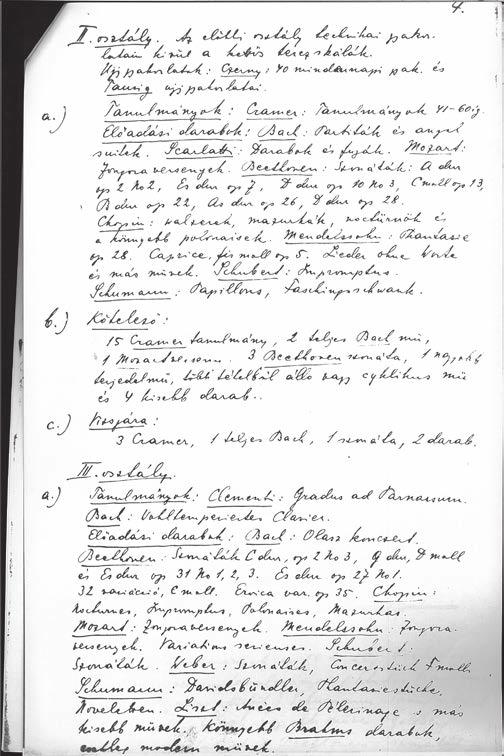 4.
II. osztály. Az előtti osztály technikai gakor-
latain kivül a kettős terczskálák.
Uj gakorlatok: Czerny: 40 mindennapi gak. és
Tausig ujjgakorlatai.
a.) Tanulmányok: Cramer: Tanulmányok 41-60ig.
Előadási darabok: Bach: Partiták és angol
suitek. Scarlatti: Darabok és fugák. Mozart:
Zongoraversenyek. Beethoven: Szonáták: A dur
op 2 No 2, Es dur op 7, D dur op 10 No 3, C moll op 13,
B dur op 22, As dur op 26, D dur op 28.
Chopin: valzerek, mazurkák, nocturnök és
a könnyebb polonaisek. Mendelssohn: Phantasie
op 28. Caprice, fis moll op 5. Lieder ohne Worte
és más művek. Schubert: Impromptus.
Schumann: Papillons, Faschingsschwank.
b.) Kötelező:
15 Cramer tanulmány, 2 teljes Bach mű,
1 Mozart verseny. 3 Beethoven szonáta, 1 nagyobb
terjedelmű, több tételből álló vagy cyklikus mű
és 4 kisebb darab..
c.) Vizsgára:
3 Cramer, 1 teljes Bach, 1 szonáta, 2 darab.
III. osztály.
a.) Tanulmányok: Clementi: Gradus ad Parnassum.
Bach: Vohltemperiertes Clavier.
Előadási darabok: Bach: Olasz koncert.
Beethoven: Szonáták C dur, op 2 No 3, G dur, D moll
és Es dur op 31 No 1, 2, 3. Es dur op 27 No 1.
32 variáció, C moll. Eroica var. op 35. Chopin:
Nocturnes, Impromptus, Polonaises, Mazurkas.
Mozart: Zongoraversenyek. Mendelssohn: Zongora-
versenyek. Variations serieuses. Schubert:
Szonáták. Weber: Szonáták, Concertstück F moll.
Schumann: Davidsbündler, Phantasiestücke,
Noveletten. Liszt: Anées de Pèlerinage s más
kisebb művek. Könnyebb Brahms darabok,
esetleg modern művek.